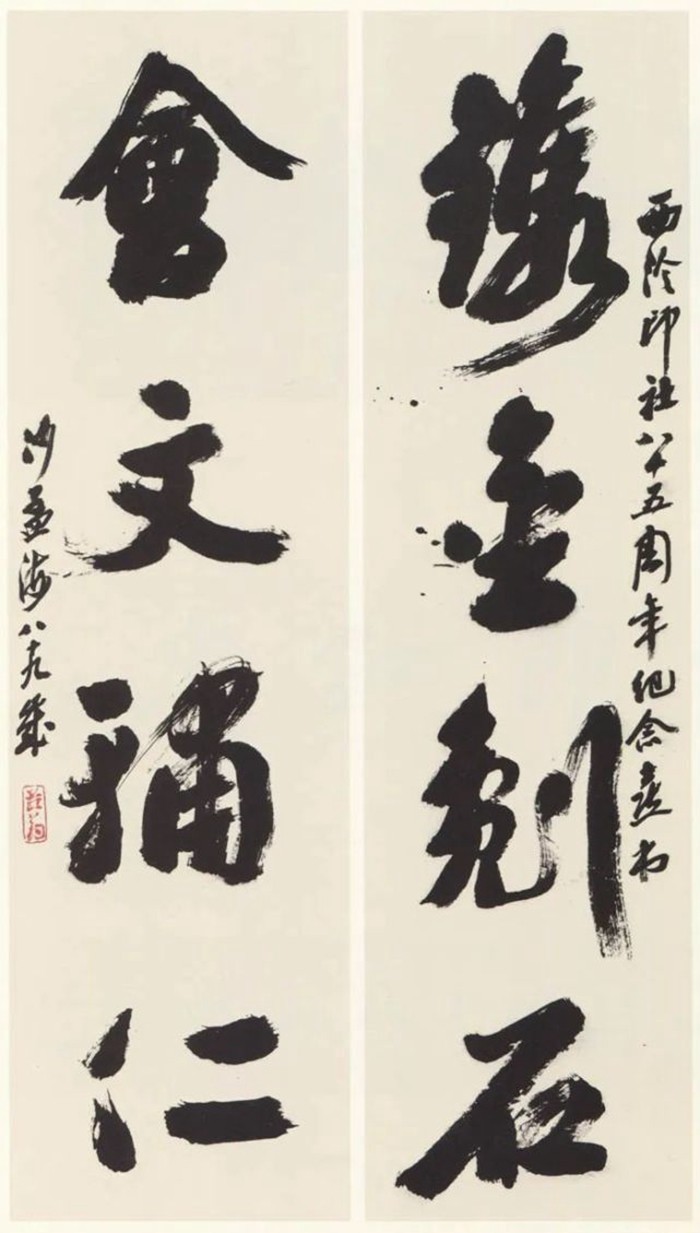 西泠印社八十五周年纪念书
金刻石
會文輔仁
沙孟海八十九歲